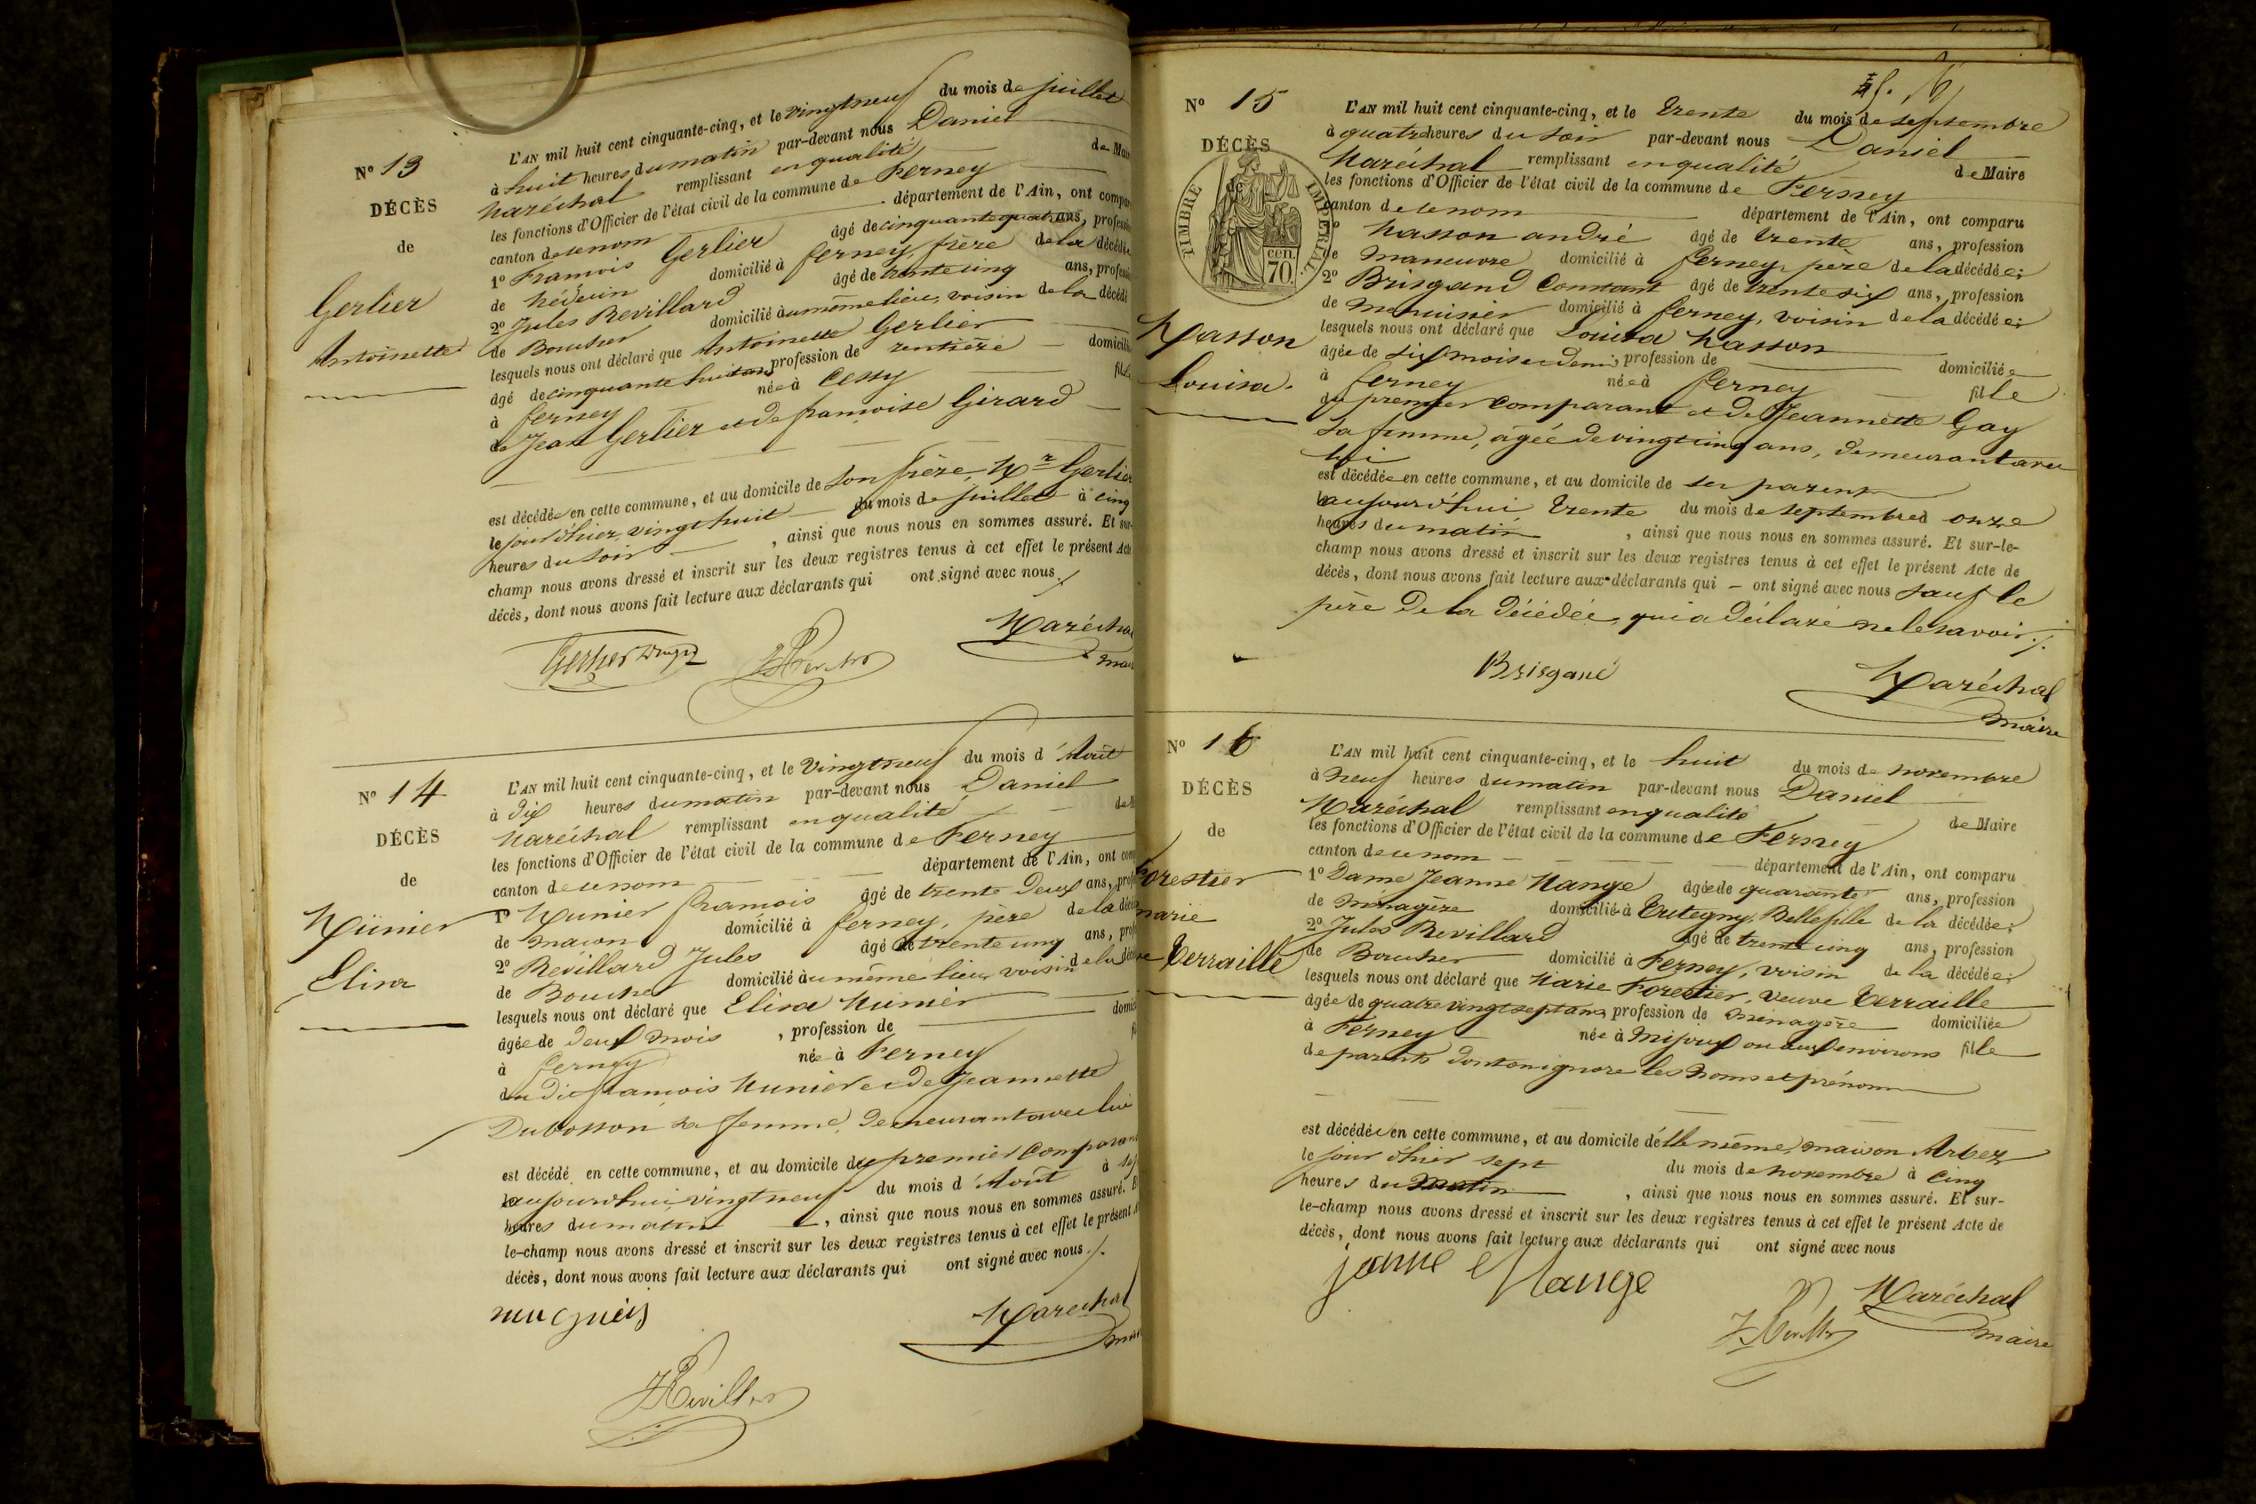 N° 13
DÉCÈS
de
Gerlier
Antoinette
L'AN mil huit cent cinquante-cinq, et le vingtneuf du mois de juillet
à huit heures du matin par-devant nous Daniel
Maréchal remplissant en qualité de Mai
les fonctions d'Officier de l'état civil de la commune de Ferney
canton de ce nom département de l'Ain, ont compa
1° François Gerlier âgé de cinquante quatre ans, profess
de Médecin domicilié à ferney, frère de la décédée
2° Jules Revillard âgé de trente cinq ans, profess
de Boucher domicilié au même lieu, voisin de la décéd
lesquels nous ont déclaré que Antoinette Gerlier
âgé de cinquante huit ans profession de rentière domicil
à ferney née à Cessy fil
de Jean Gerlier et de françoise Girard
est décédée en cette commune, et au domicile de son frère, Mr Gerlier
le jour d'hier, vingt huit du mois de juillet à cinq
heures du soir, ainsi que nous nous en sommes assuré. Et sur-
champ nous avons dressé et inscrit sur les deux registres tenus à cet effet le présent Acte
décès, dont nous avons fait lecture aux déclarants qui ont signé avec nous ./.
Gerlier
Maréchal
maire
N° 14
DÉCÈS
de
Münier
Elisa
L'AN mil huit cent cinquante-cinq, et le vingtneuf du mois d'Août
à dix heures du matin par-devant nous Daniel
Maréchal remplissant en qualité de M
les fonctions d'Officier de l'état civil de la commune de Ferney
canton de ce nom département de l'Ain, ont com
1° Munier françois âgé de trente deux ans, prof
de maçon domicilié à ferney, père de la décé
2° Révillard Jules âgé de trente cinq ans, prof
de Boucher domicilié au même lieu, voisin de la déc
lesquels nous ont déclaré que Elisa Munier
âgée de deux mois, profession de domici
à ferney née à Ferney fi
du dit françois Munier et de Jeannette
Dubosson sa femme, demeurant avec lui
est décédé en cette commune, et au domicile du premier comparant
le aujourd'hui vingtneuf du mois d'Août à sep
heures du matin, ainsi que nous nous en sommes assuré. E
le-champ nous avons dressé et inscrit sur les deux registres tenus à cet effet le présent A
décès, dont nous avons fait lecture aux déclarants qui ont signé avec nous ./.
Maréchal
maire
JRevillard
N° 15
DÉCÈS
de
TIMBRE IMPÉRIAL
70 cen.
Masson
Louisa.
L'AN mil huit cent cinquante-cinq, et le trente du mois de septembre
à quatre heures du soir par-devant nous Daniel
Maréchal remplissant en qualité de Maire
les fonctions d'Officier de l'état civil de la commune de Ferney
canton de ce nom département de l'Ain, ont comparu
1° Masson andré âgé de trente ans, profession
de Maneuvre domicilié à ferney, père de la décédée;
2° Brisgand Constant âgé de trente six ans, profession
de menuisier domicilié à ferney, voisin de la décédée;
lesquels nous ont déclaré que Louisa Masson
âgée de six mois et demi, profession de domiciliée
à ferney née à ferney fille
du premier comparant et de Jeannette Gay
sa femme, âgée de vingt cinq ans, demeurant avec
lui
est décédée en cette commune, et au domicile de ses parents
le aujourd'hui trente du mois de septembre à onze
heures du matin, ainsi que nous nous en sommes assuré. Et sur-le-
champ nous avons dressé et inscrit sur les deux registres tenus à cet effet le présent Acte de
décès, dont nous avons fait lecture aux déclarants qui – ont signé avec nous sauf le
père de la décédée, qui a déclaré ne le savoir ./.
Brisgand
Maréchal
maire
N° 16
DÉCÈS
de
Forestier
marie
Terraille
L'AN mil huit cent cinquante-cinq, et le huit du mois de novembre
à neuf heures du matin par-devant nous Daniel
Maréchal remplissant en qualité de Maire
les fonctions d'Officier de l'état civil de la commune de Ferney
canton de ce nom département de l'Ain, ont comparu
1° Dame Jeanne Mange âgée de quarante ans, profession
de Ménagère domiciliée à Cutegny, Bellefille de la décédée;
2° Jules Revillard âgé de trente cinq ans, profession
de Boucher domicilié à Ferney, voisin de la décédée;
lesquels nous ont déclaré que Marie Forestier, veuve Terraille
âgée de quatre vingt sept ans, profession de ménagère domiciliée
à Ferney née à Mijoux ou aux environs fille
de parents dont on ignore les noms et prénoms
est décédée en cette commune, et au domicile d'elle même, maison Arbez
le jour d'hier sept du mois de novembre à cinq
heures du matin, ainsi que nous nous en sommes assuré. Et sur-
le-champ nous avons dressé et inscrit sur les deux registres tenus à cet effet le présent Acte de
décès, dont nous avons fait lecture aux déclarants qui ont signé avec nous
janne Mange
Maréchal
maire